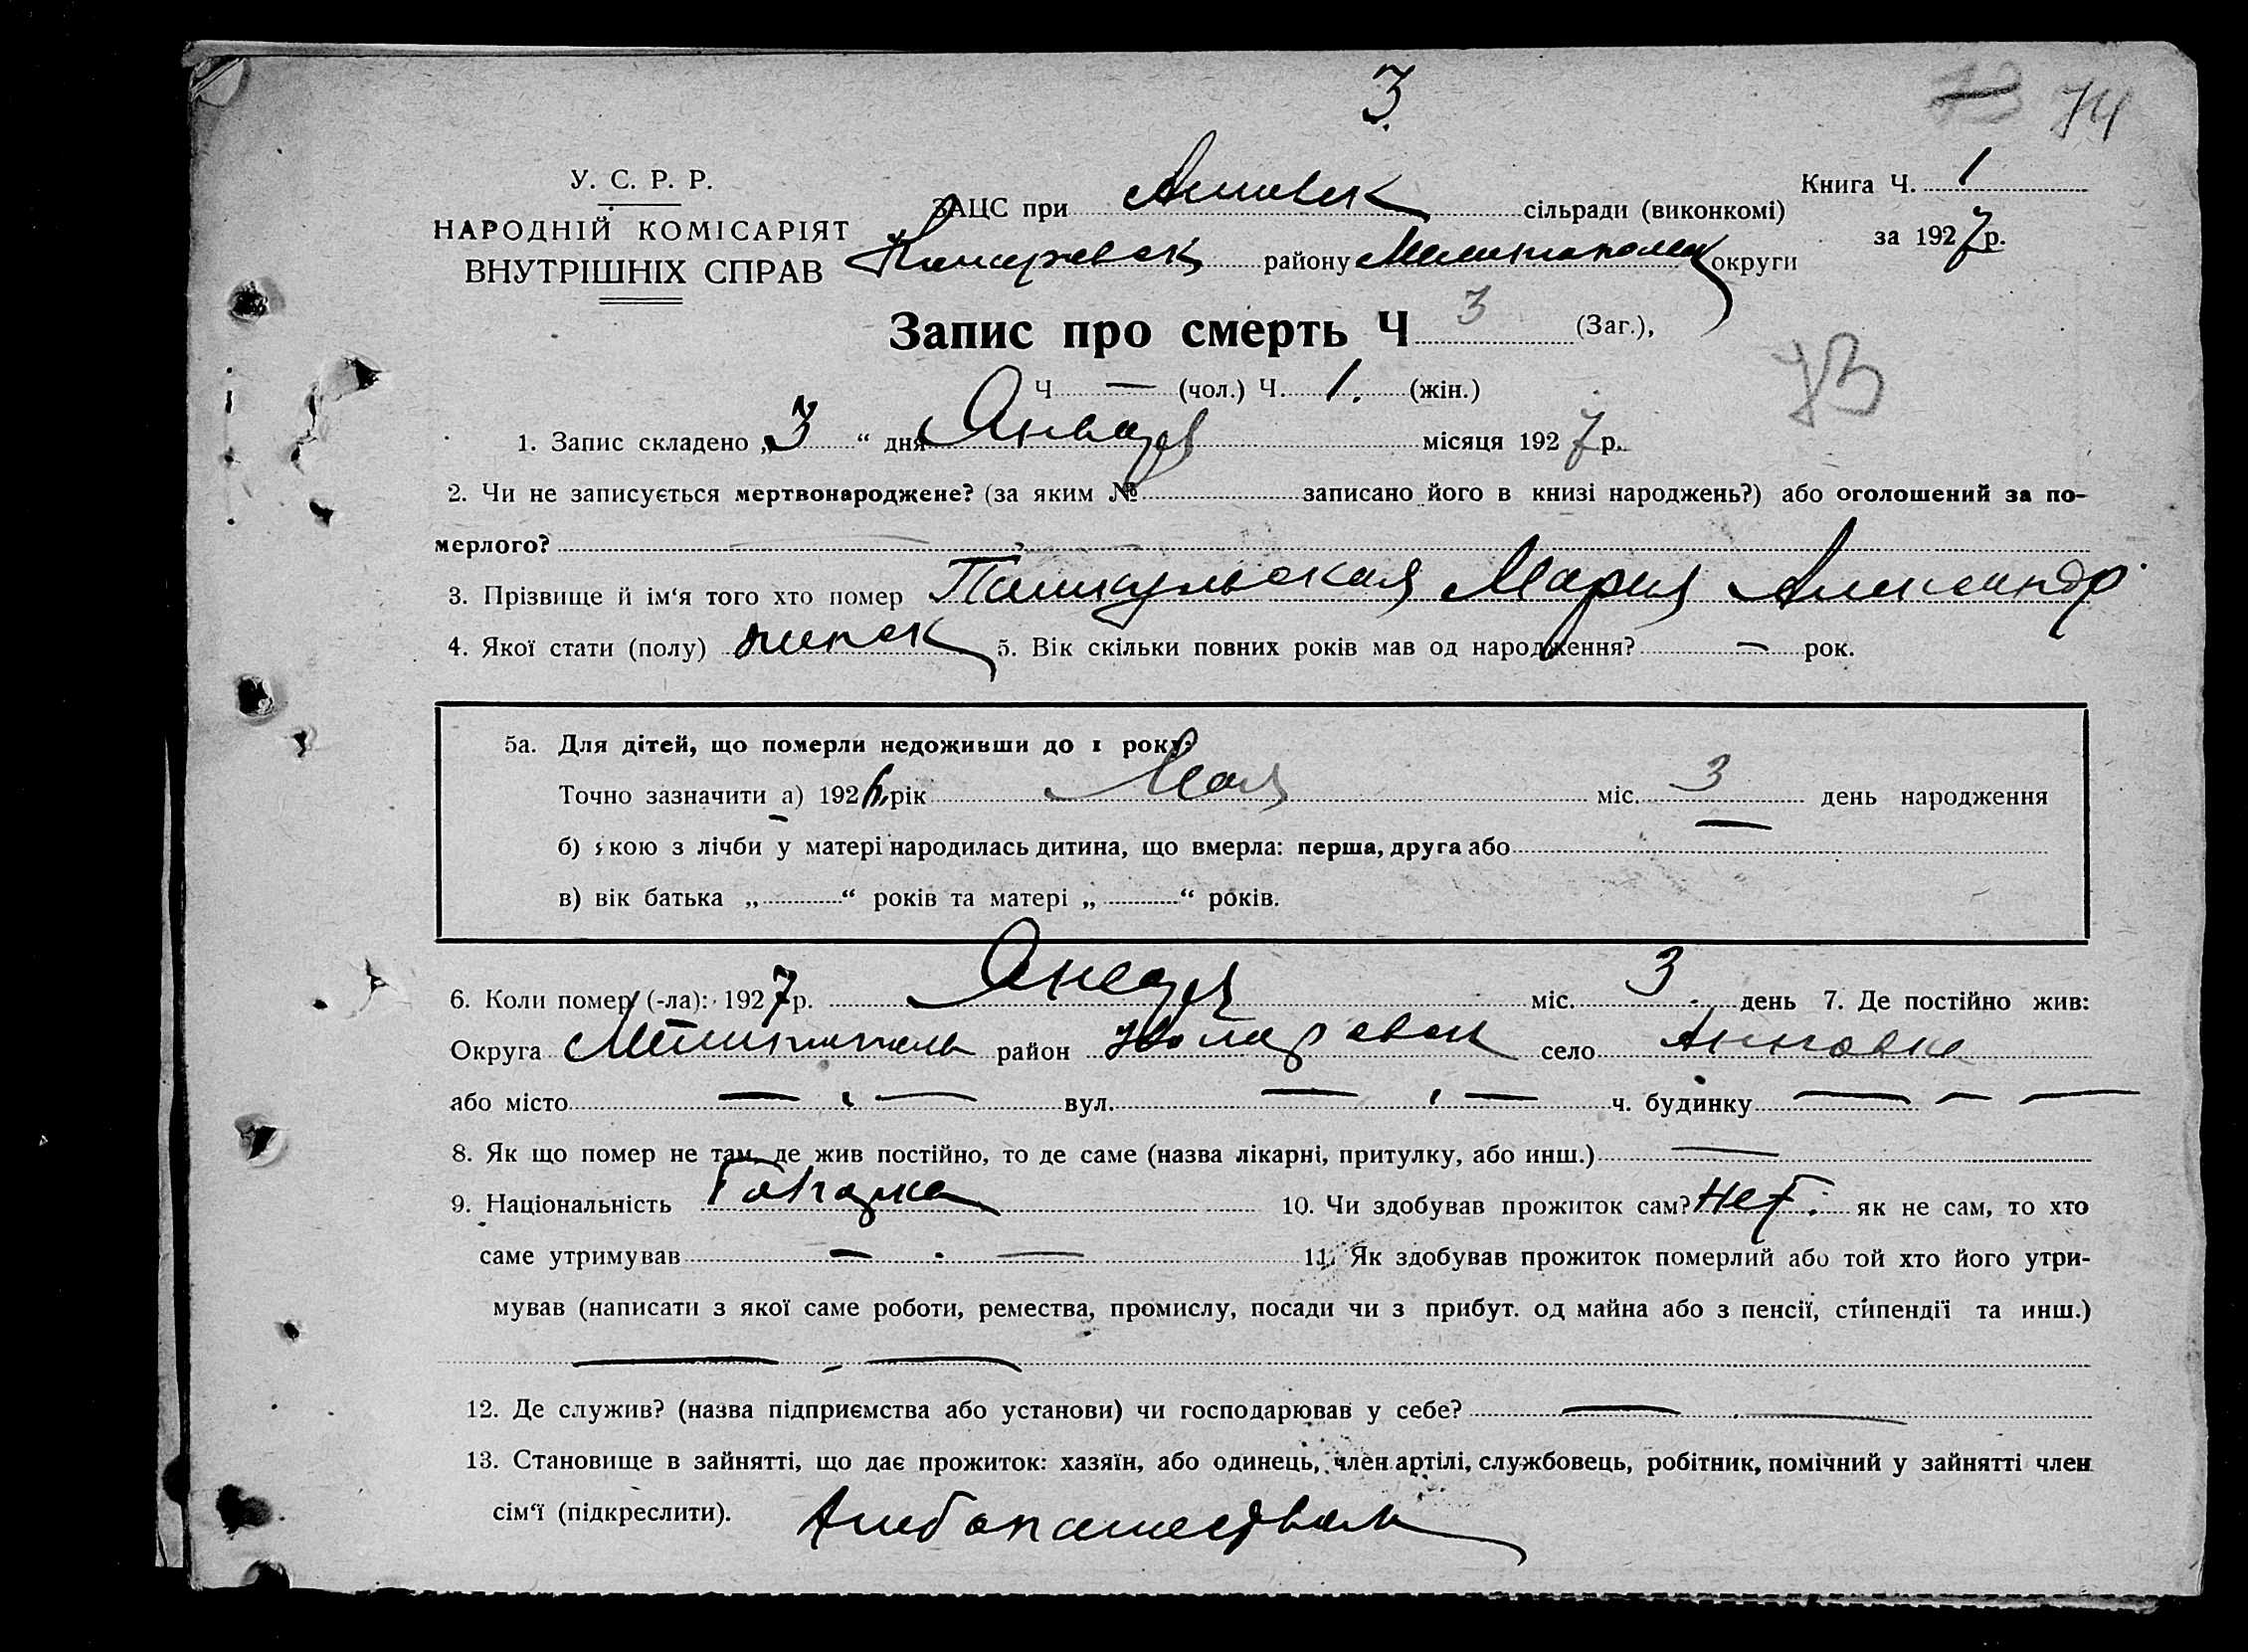 3.
73 74
У. С. Р. Р.
НАРОДНІЙ КОМІСАРІЯТ
ВНУТРІШНІХ СПРАВ
ЗАЦС при Анновск сільради (виконкомі)
району Мелитополск округи
Книга Ч. 1
за 1927 р.
Запис про смерть Ч 3 (Заг.),
73
Ч — (чол.) Ч. 1. (жін.)
1. Запис складено „3“ дня Января місяця 1927 р.
2. Чи не записується мертвонароджене? (за яким № записано його в книзі народжень?) або оголошений за по-
мерлого?
3. Прізвище й ім‘я того хто помер Мария Александр
4. Якої стати (полу) женск 5. Вік скільки повних років мав од народження? — рок.
5а. Для дітей, що померли недоживши до 1 року:
Точно зазначити а) 1926 рік Мая міс. 3 день народження
б) якою з лічби у матері народилась дитина, що вмерла: перша, друга або
в) вік батька „ “ років та матері „ “ років.
6. Коли помер (-ла): 1927 р. Января міс. 3 день 7. Де постійно жив:
Округа Мелитополь район село Анновка
або місто — — вул. — — ч. будинку — — —
8. Як що помер не там, де жив постійно, то де саме (назва лікарні, притулку, або инш.) —
9. Національність 10. Чи здобував прожиток сам? Нет як не сам, то хто
саме утримував — — 11. Як здобував прожиток померлий або той хто його утри-
мував (написати з якої саме роботи, ремества, промислу, посади чи з прибут. од майна або з пенсії, стипендії та инш.)
— —
12. Де служив? (назва підприємства або установи) чи господарював у себе? — —
13. Становище в зайнятті, що дає прожиток: хазяїн, або одинець, член артілі, службовець, робітник, помічний у зайнятті член
сім‘ї (підкреслити).